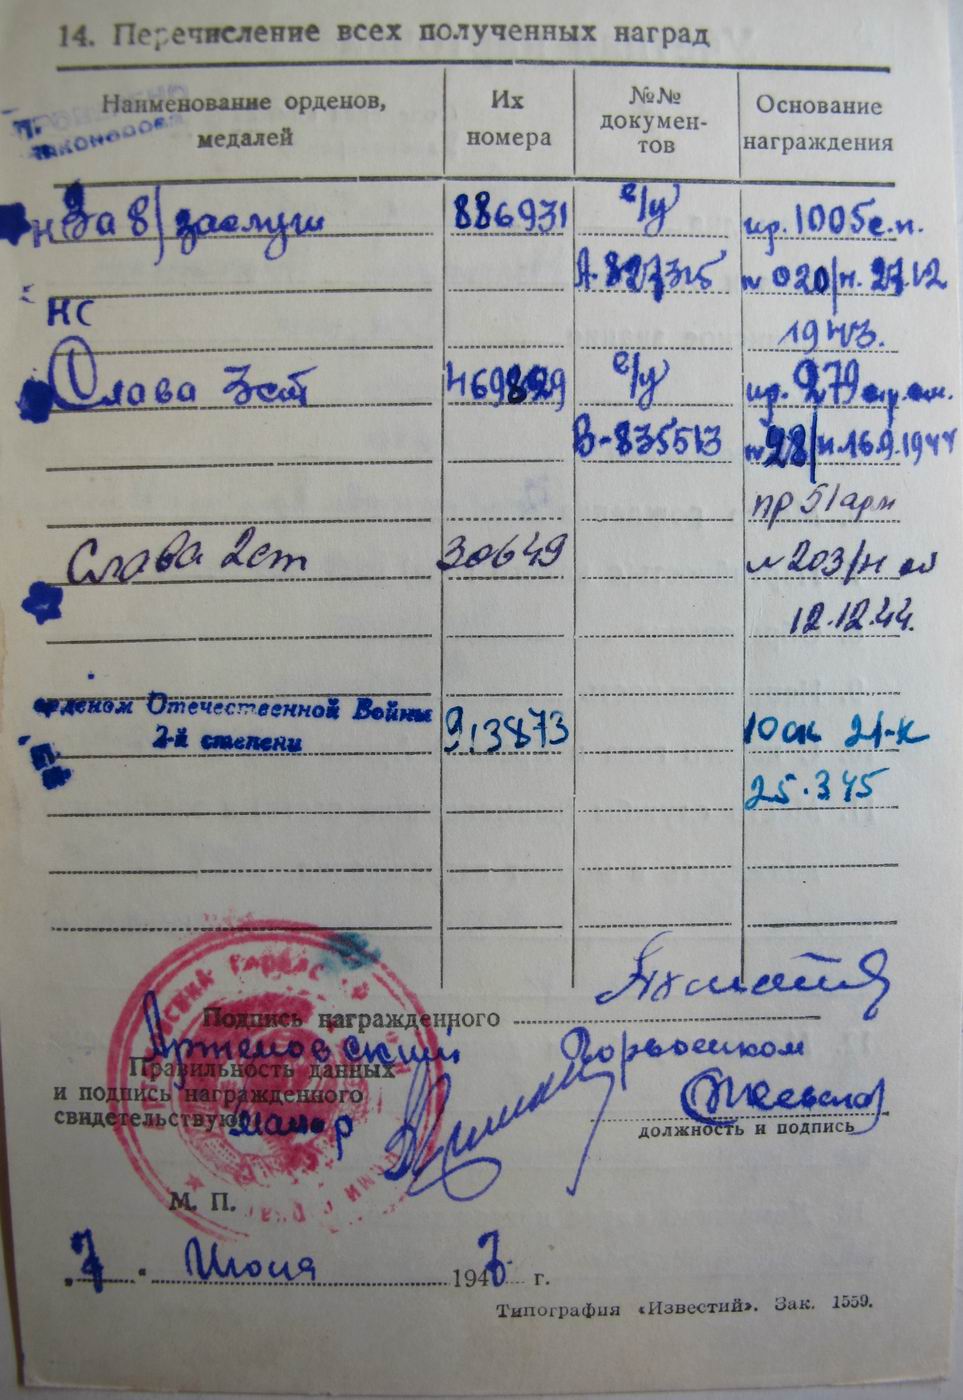 14. Перечисление всех полученных наград
Наименование орденов, медалей
Их номера
№№ докумен- тов
Основание награждения
За б/заслуги 886931 в/у пр. 1005 с.п.
А-827315 № 020/н. 27.12
НС 1943.
Слава 3 ст 469829 в/у пр. 279
В-835513 № 98/н. 16.9.1944
пр 51 арм
Слава 2 ст 30649 № 203/н от
12.12.44.
орденом Отечественной Войны 913873
2-й степени
Подпись награжденного
Артемовский Горвоенком
Правильность данных
и подпись награжденного
свидетельствую
майор
должность и подпись
М. П.
7 Июня 1947 г.
Типография «Известий». Зак. 1559.